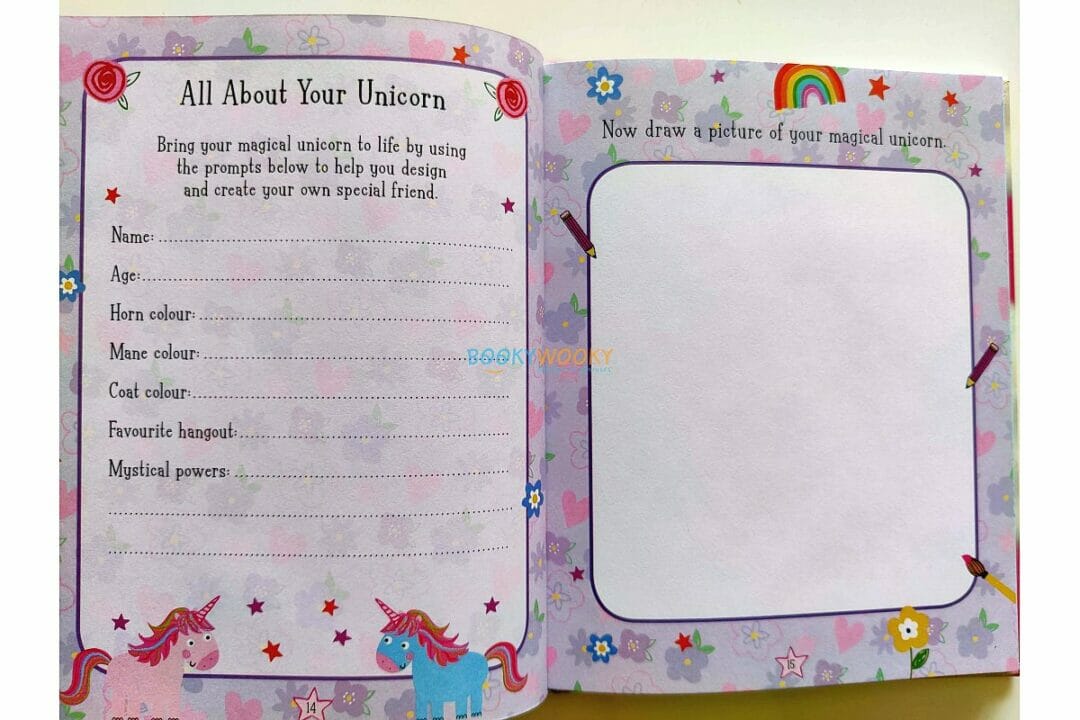 All About Your Unicorn
Bring your magical unicorn to life by using
the prompts below to help you design
and create your own special friend.
Name:
Age:
Horn colour:
Mane colour:
Coat colour:
Favourite hangout:
Mystical powers:
14
Now draw a picture of your magical unicorn.
15
BOOKYWOOKY